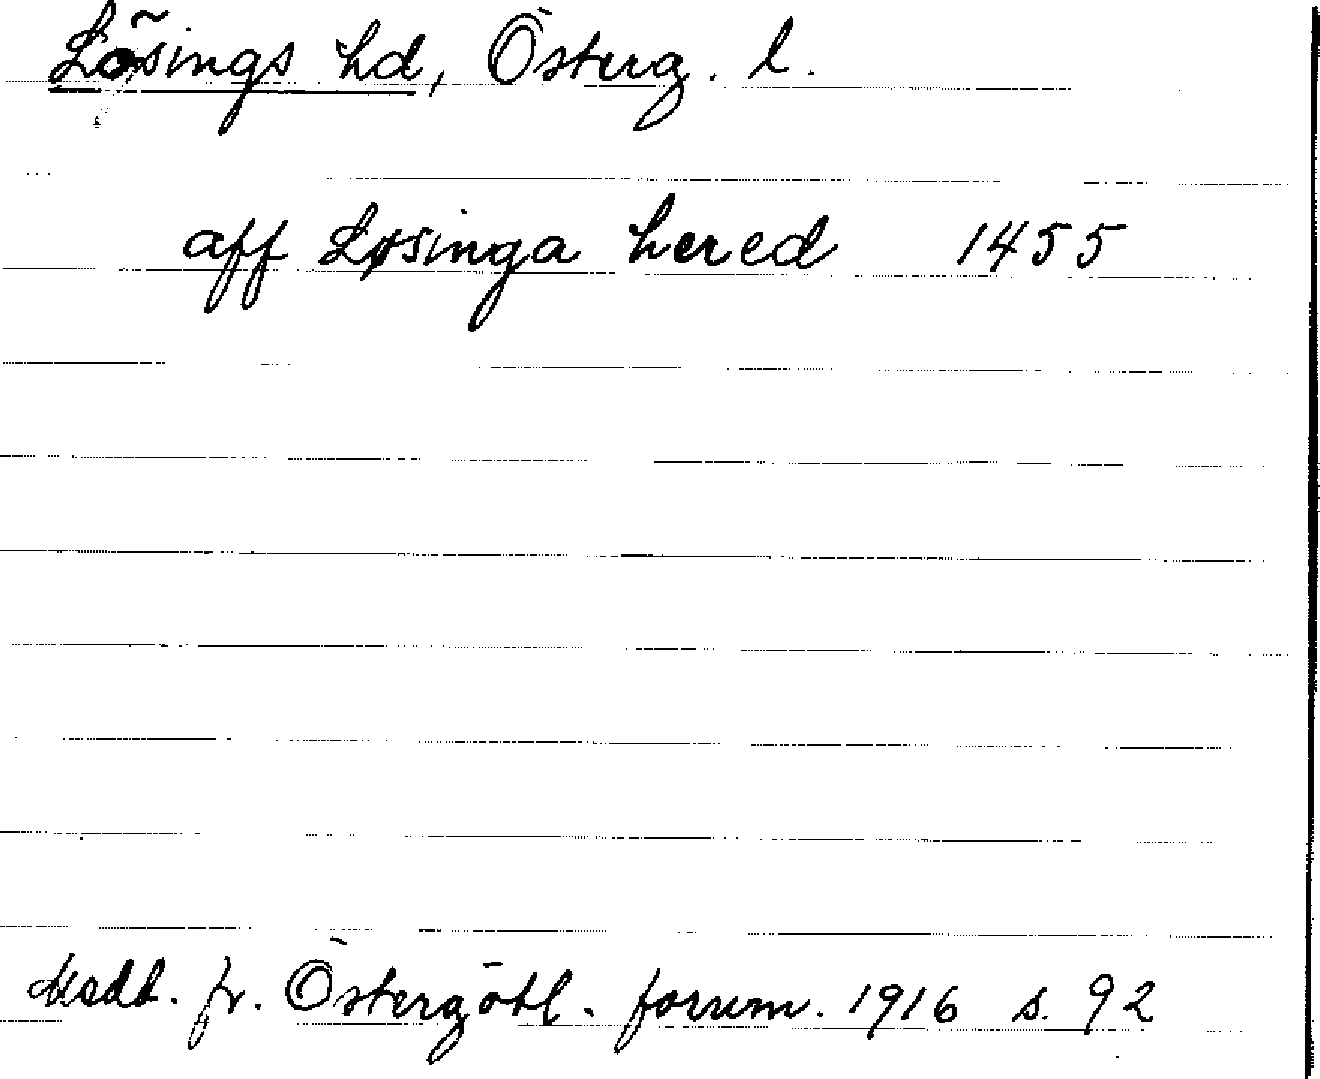 Lösings hd, Österg. l.
aff Løsinga hered 1455
Medd. fr. Östergötl. fornm. 1916 s. 92